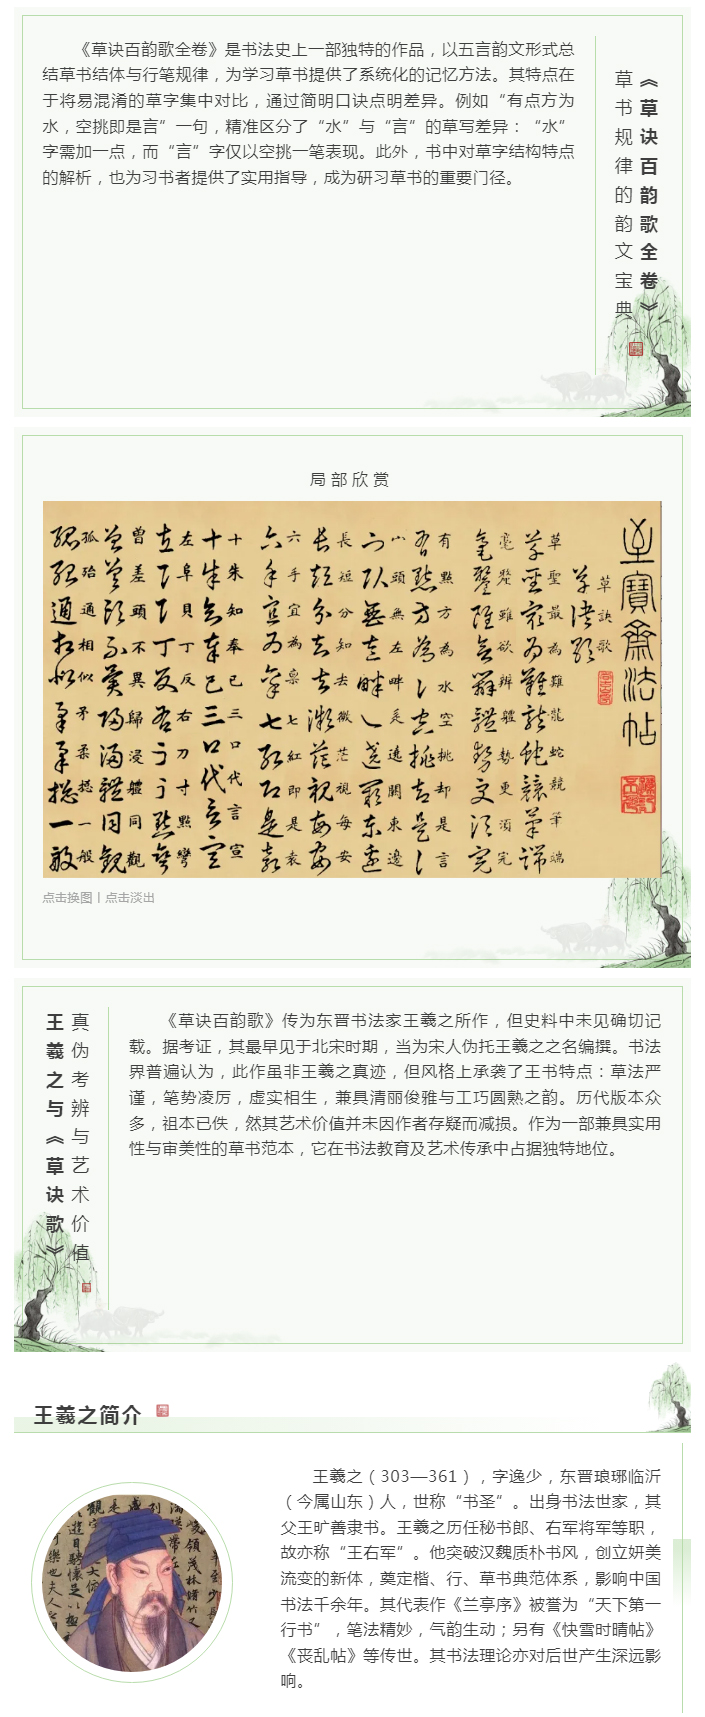 《草诀百韵歌全卷》
草书规律的韵文宝典
《草诀百韵歌全卷》是书法史上一部独特的作品，以五言韵文形式总
结草书结体与行笔规律，为学习草书提供了系统化的记忆方法。其特点在
于将易混淆的草字集中对比，通过简明口诀点明差异。例如“有点方为
水，空挑即是言”一句，精准区分了“水”与“言”的草写差异：“水”
字需加一点，而“言”字仅以空挑一笔表现。此外，书中对草字结构特点
的解析，也为习书者提供了实用指导，成为研习草书的重要门径。
局部欣赏
至寶齋法帖
草訣歌
草聖最為難龍蛇競筆端
毫釐雖欲辨體勢更須完
有點方為水空挑却是言
山頭無左畔辵遠闕東邊
長短分知去微茫視每安
六手宜為稟七紅即是袁
十朱知奉已三口代言宣
左阜貝丁反右刀寸點彎
曾差頭不異歸浸體同觀
孤殆通相似矛柔總一般
点击换图丨点击淡出
王羲之与《草诀歌》
真伪考辨与艺术价值
《草诀百韵歌》传为东晋书法家王羲之所作，但史料中未见确切记
载。据考证，其最早见于北宋时期，当为宋人伪托王羲之之名编撰。书法
界普遍认为，此作虽非王羲之真迹，但风格上承袭了王书特点：草法严
谨，笔势凌厉，虚实相生，兼具清丽俊雅与工巧圆熟之韵。历代版本众
多，祖本已佚，然其艺术价值并未因作者存疑而减损。作为一部兼具实用
性与审美性的草书范本，它在书法教育及艺术传承中占据独特地位。
王羲之简介
王羲之（303—361），字逸少，东晋琅琊临沂
（今属山东）人，世称“书圣”。出身书法世家，其
父王旷善隶书。王羲之历任秘书郎、右军将军等职，
故亦称“王右军”。他突破汉魏质朴书风，创立妍美
流变的新体，奠定楷、行、草书典范体系，影响中国
书法千余年。其代表作《兰亭序》被誉为“天下第一
行书”，笔法精妙，气韵生动；另有《快雪时晴帖》
《丧乱帖》等传世。其书法理论亦对后世产生深远影
响。